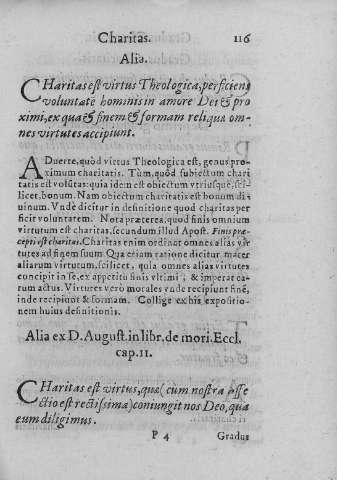 Charitas. 116
Alia.
CHaritas est virtus Theologica, perficiens
voluntatē hominis in amore Dei & pro
ximi, ex qua & finem & formam reliquæ om-
nes virtutes accipiunt.
ADuerte, quòd virtus Theologica est, genus pro-
ximum charitatis. Tùm, quòd subiectum chari
tatis est volūtas: quia idem est obiectum vtriusq;, sci-
licet, bonum. Nam obiectum charitatis est bonum di
uinum. Vnde dicitur in definitione quòd charitas per
ficit voluntatem. Nota præterea, quòd finis omnium
virtutum est charitas, secundum illud Apost. Finis præ-
cepti est charitas. Charitas enim ordinat omnes alias vir
tutes ad finem suum Qua etiam ratione dicitur mater
aliarum virtutum, scilicet, quia omnes alias virtutes
concipit in se, ex appetitu finis vltimi; & imperat ea-
rum actus. Virtutes verò morales vnde recipiunt finē,
inde recipiunt & formam. Collige ex his expositio-
nem huius definitionis.
Alia ex D. August. in libr. de mori. Eccl.
cap. 11.
CHaritas est virtus, quæ (cùm nostra affe
ctio est rectissima) coniungit nos Deo, qua
eum diligimus.
P 4 Gradus